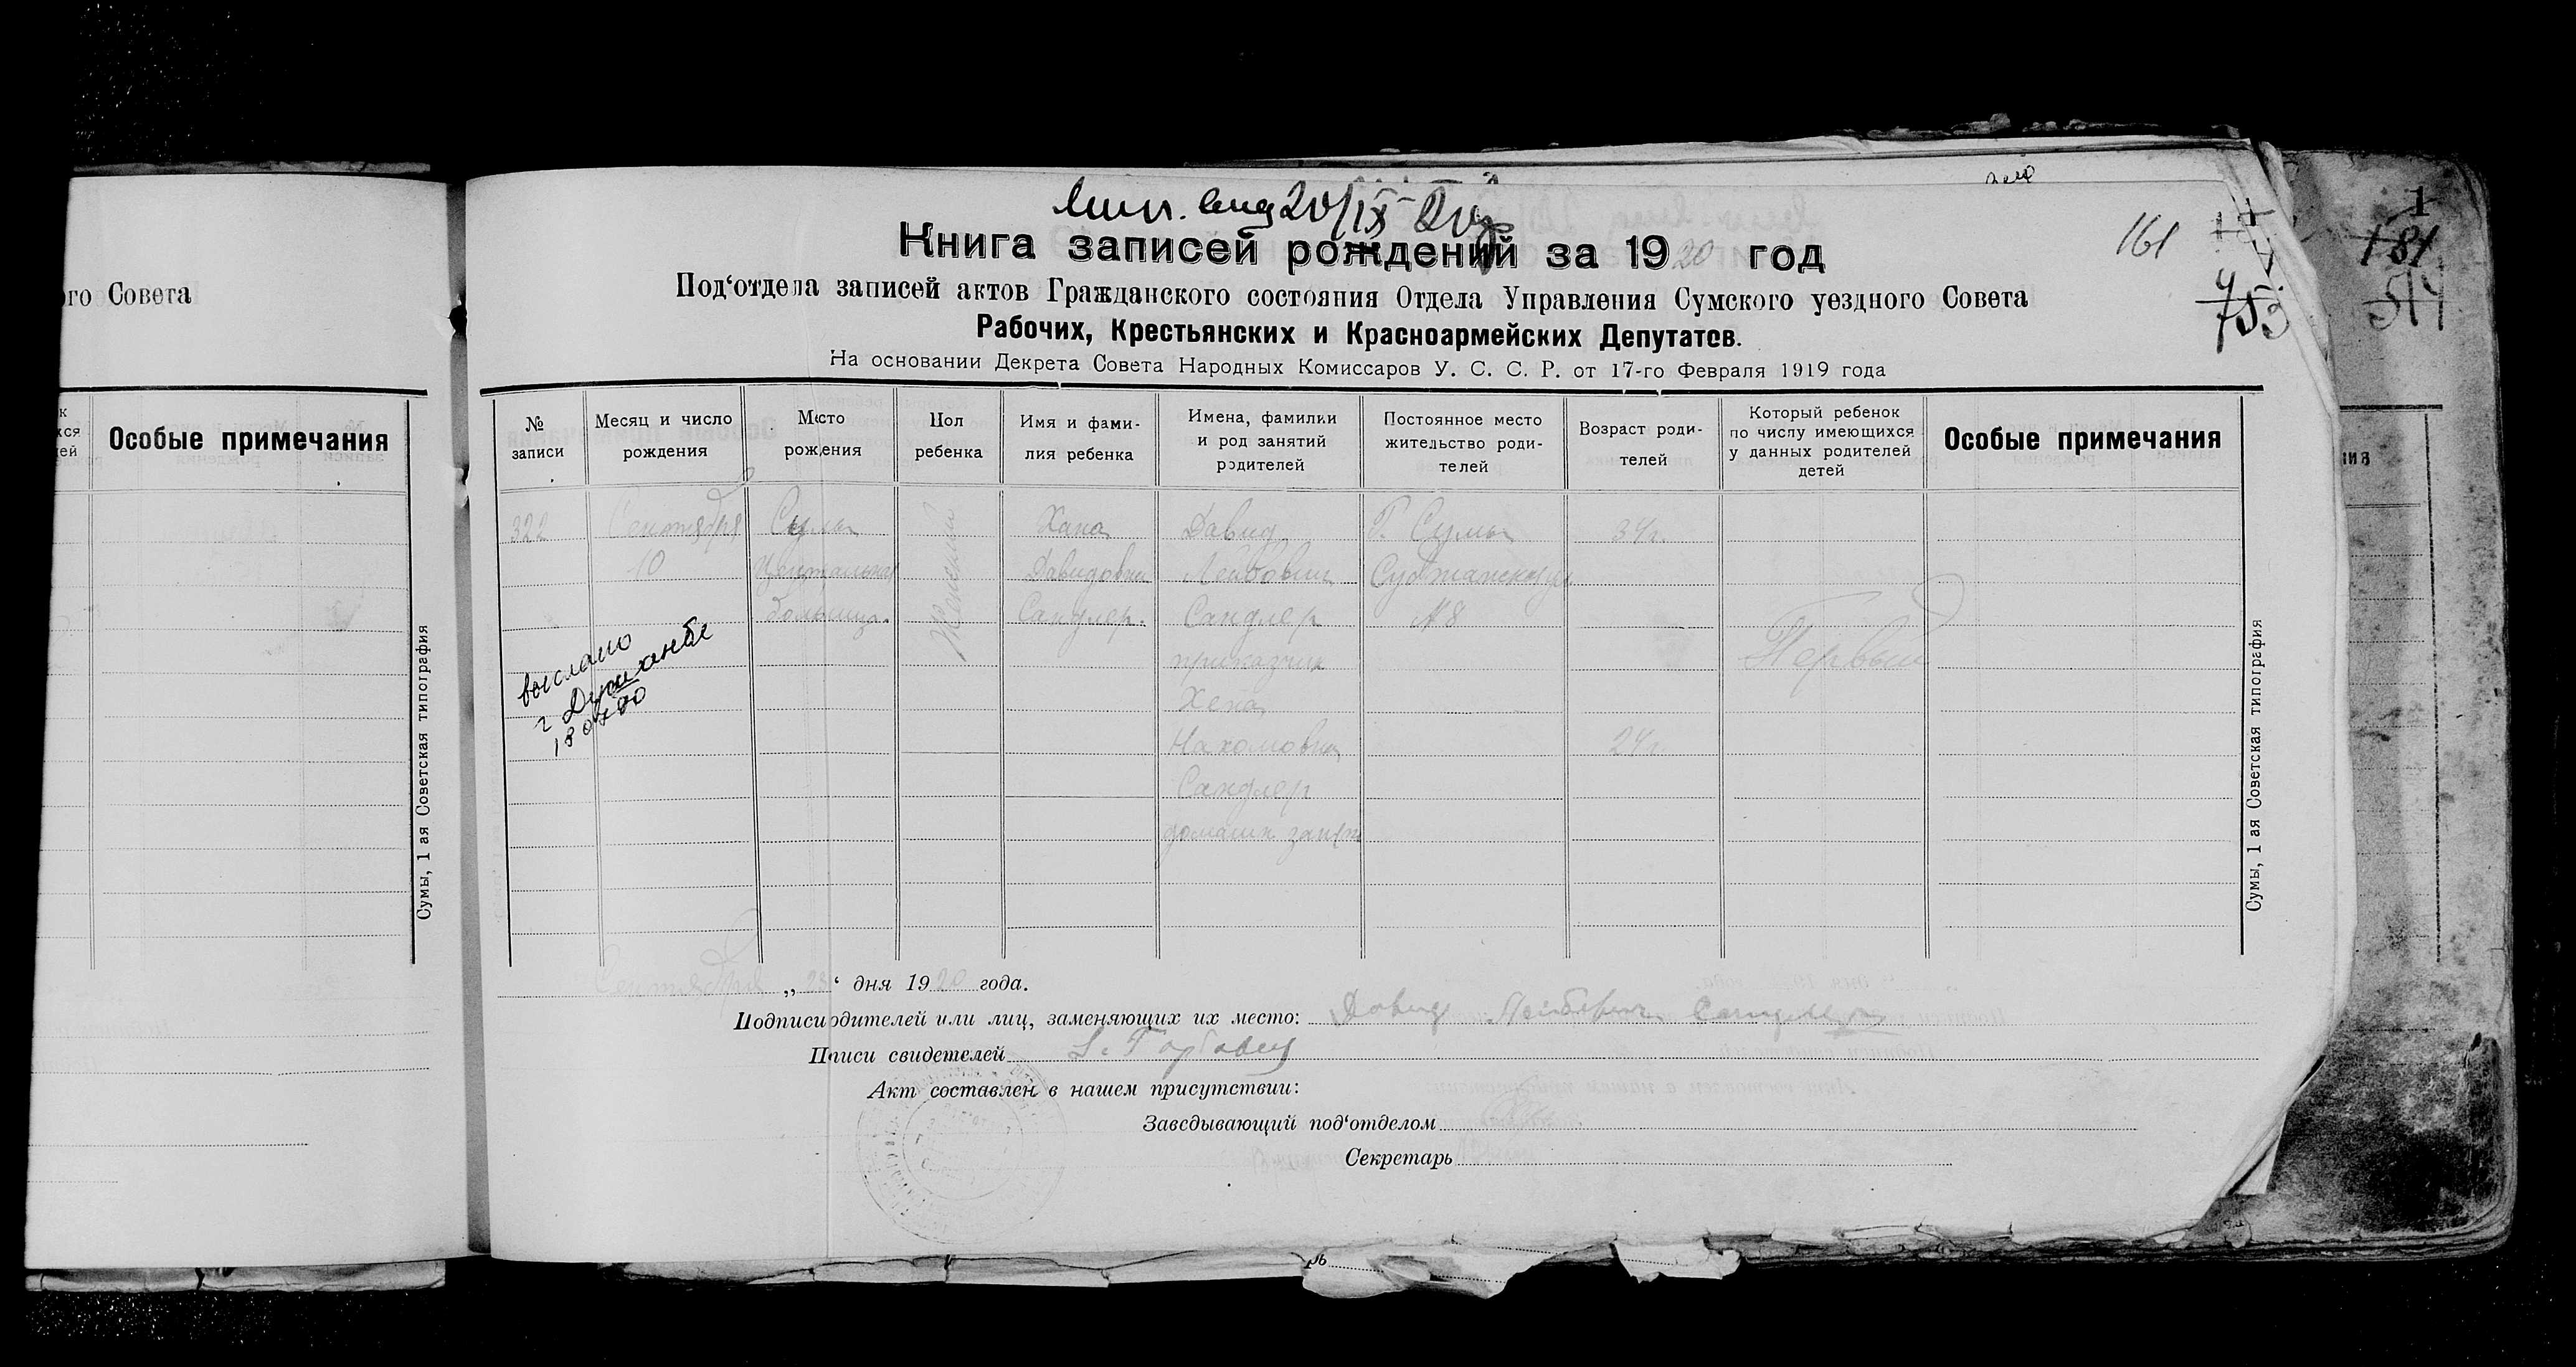 ого Совета
Особые примечания
Сумы, 1 ая Советская типография
20/IX
Книга записей рождений за 1920 год
161
Под‘отдела записей актов Гражданского состояния Отдела Управления Сумского уездного Совета
Рабочих, Крестьянских и Красноармейских Депутатов.
На основании Декрета Совета Народных Комиссаров У. С. С. Р. от 17-го Февраля 1919 года
753
1
181
514
№ записи
Месяц и число рождения
Место рождения
Пол ребенка
Имя и фами-
лия ребенка
Имена, фамилии
и род занятий
родителей
Постоянное место
жительство роди-
телей
Возраст роди-
телей
Который ребенок
по числу имеющихся
у данных родителей
детей
Особые примечания
322
Сентября
10
Сумы
Центральная
больница.
Женский
Хана
Давидовна
Сандлер.
Давид
Лейбович
Сандлер
приказчик
Хена
Нахомовна
Сандлер
домашн. занят
Г. Сумы
Суджанская
№ 8
34 г.
24 г.
Первый
выслано
г Душанбе
Сумы, 1 ая Советская типография
Сентября „28“ дня 1920 года.
Подписи родителей или лиц, заменяющих их место: Давид Лейбович Сандлер
Подписи свидетелей
Акт составлен в нашем присутствии:
Заведывающий под‘отделом
Секретарь